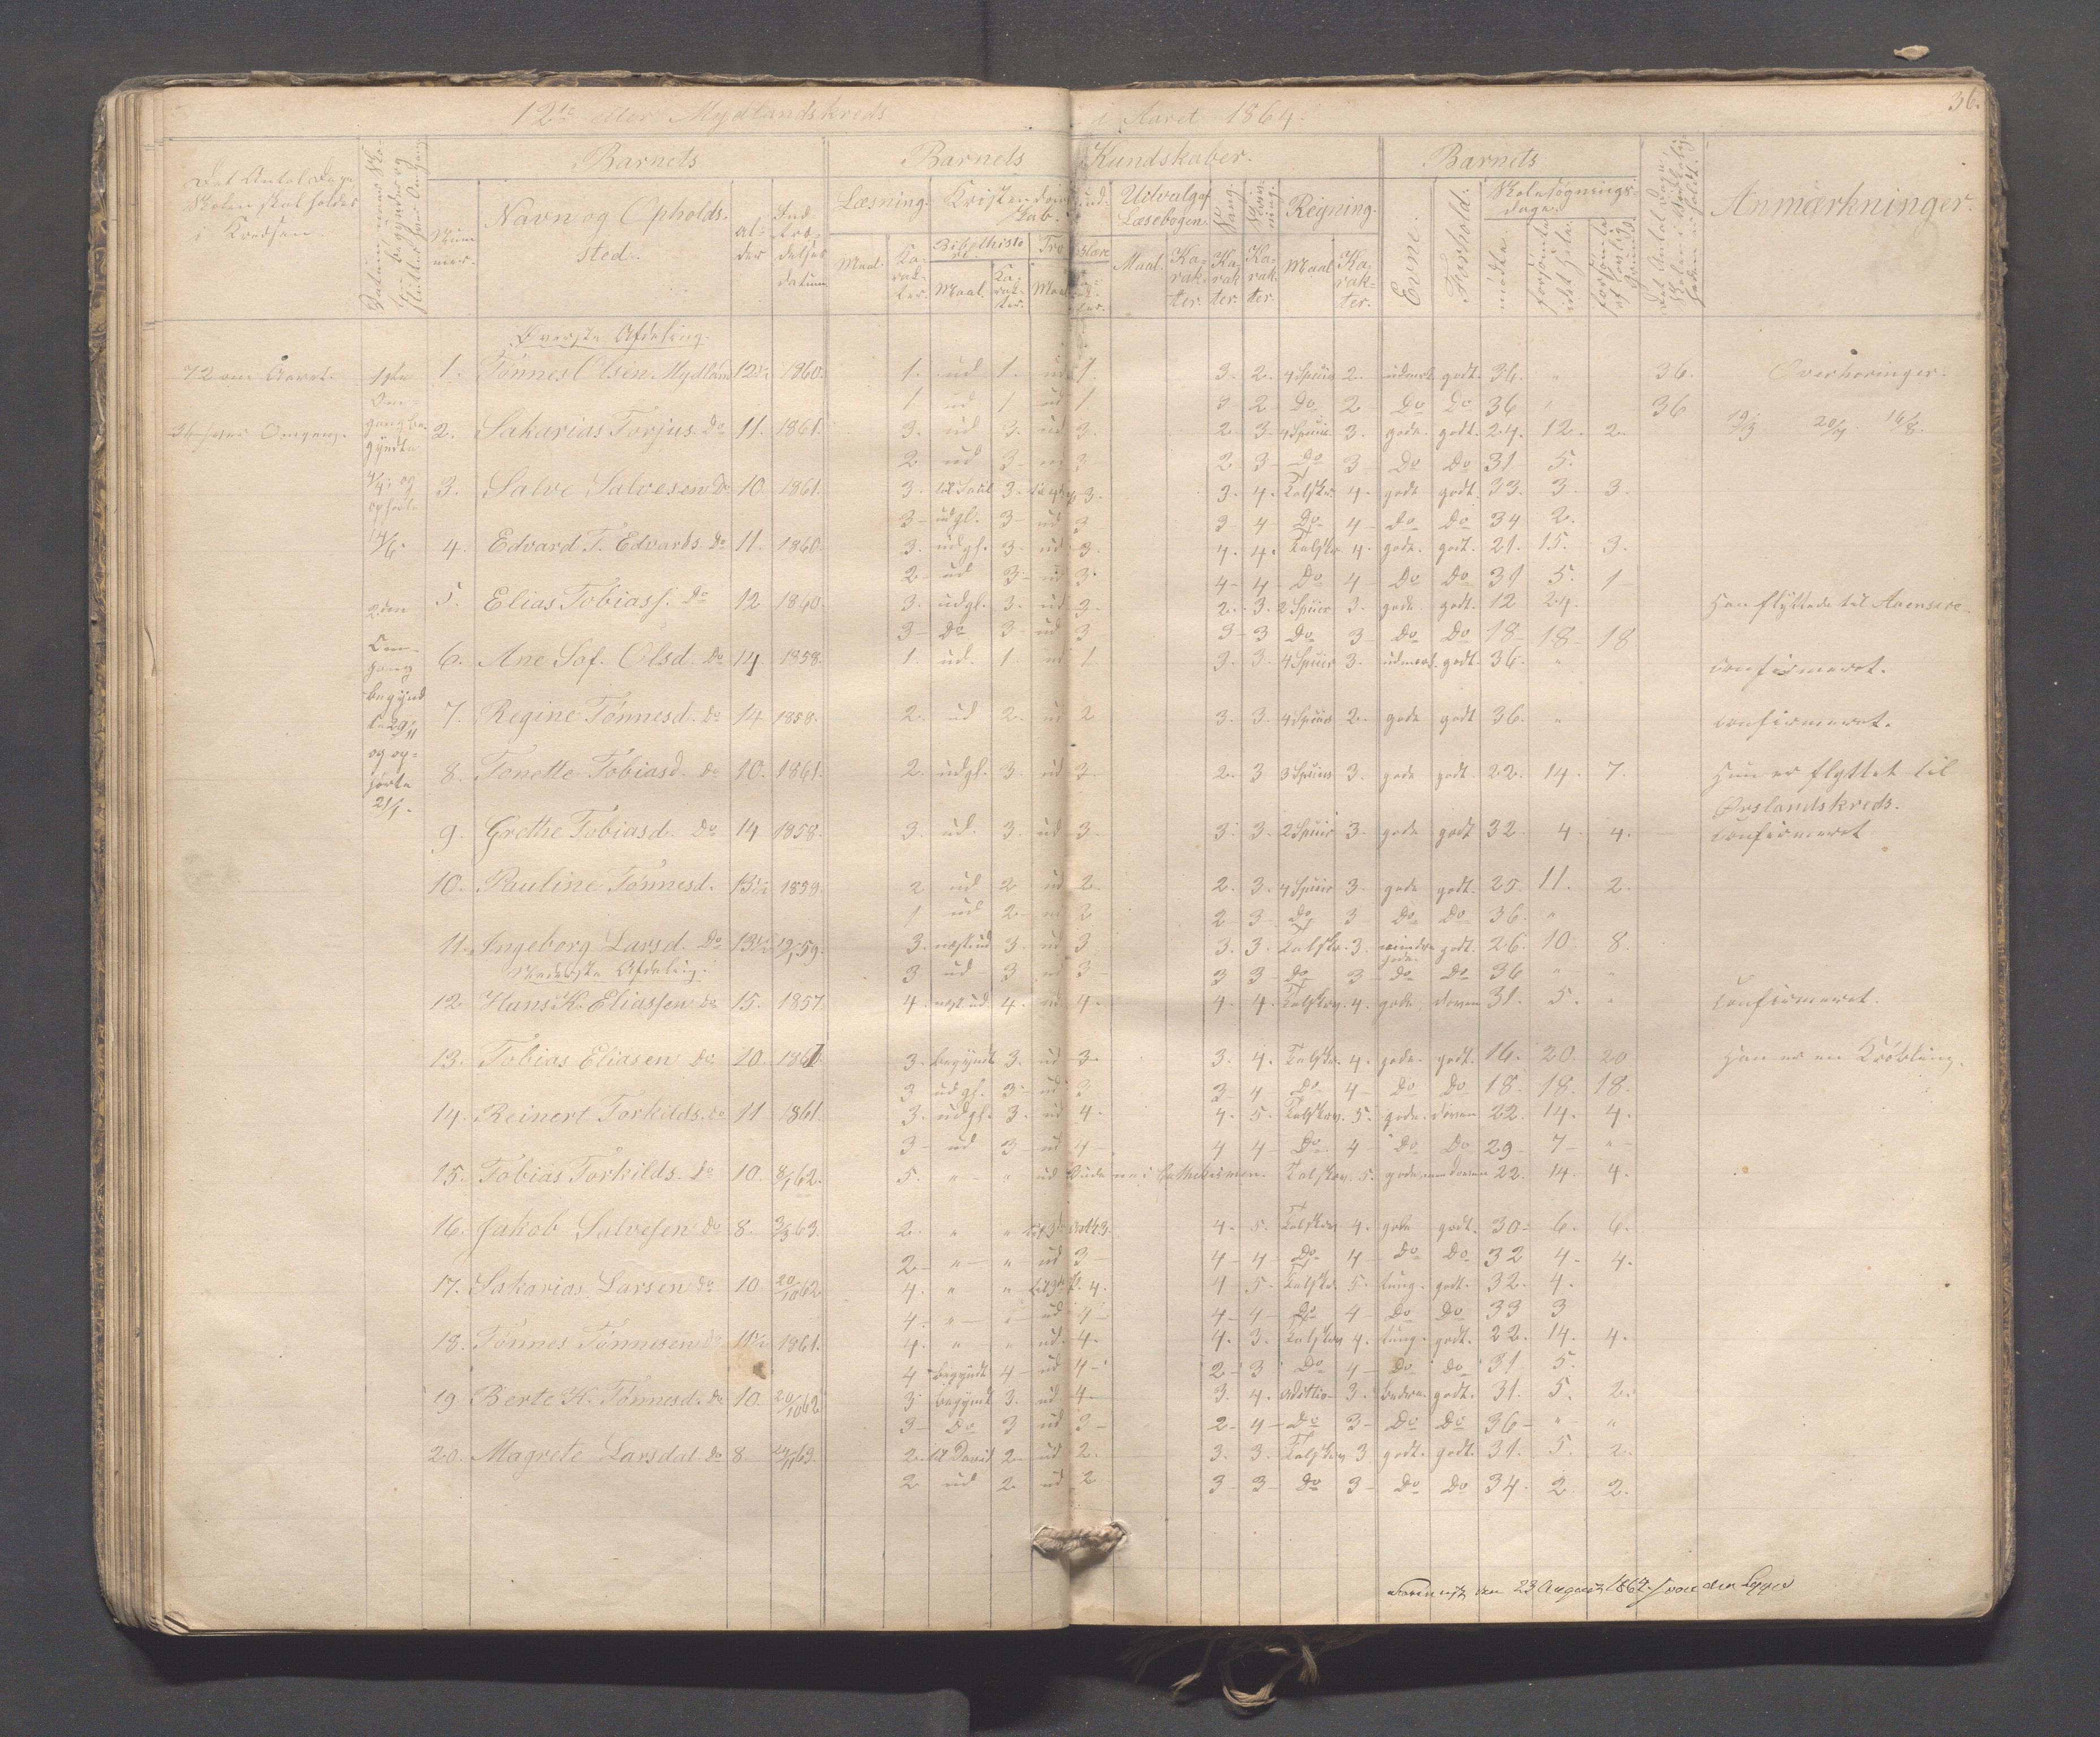 12te eller Mydlandskreds i Aaret 1864.
36.
Det Antal Dage Skolen skal holdes i Kredsen.
Datum naar Skolen begynder og slutter hver Omgang
Nummer.
Barnets
Navn og Opholdssted.
Alder
Indtrædelsesdatum
Barnets Kundskaber.
Læsning.
Maal.
Karakter.
Kristendomskab.
Bibelhistorie
Maal.
Karakter.
Troeslære
Maal
Udvalg af Læsebogen.
Maal.
Karakter.
Sang.
Karakter.
Skrivning.
Karakter.
Regning.
Maal
Karakter.
Barnets
Evne.
Forhold.
Skolesøgningsdage.
mødte.
forsømte i det Hele.
forsømte af lovlig Grund.
Det Antal Dage Skolen i Virkelighheden er holdt.
Anmærkninger.
Øverste Afdeling.
72 om Aaret.
36 hver Omgang.
1ste Omgang begyndte 4/4 og ophørte 14/6.
2den Omgang begyndte 29/11 og ophørte 21/1.
1. Tønnes Olsen Mydland 12½ 1860. 1. ud 1. ud 1. 3. 2. 4 Spcier 2. udmærk. godt. 36. " 36. Overhøringer.
1 ud 1 ud 1 3 2 Do 2 Do Do 36 " 36 19/3 20/7 16/8.
2. Sakarias Torjus. Do 11. 1861. 3. ud 3. ud 3. 2. 3. 4 Spcier. 3. gode. godt. 24. 12. 2.
2 ud 3 ud 3 2 3 Do 3 Do Do 31 5.
3. Salve Salvesen Do 10. 1861. 3. til Saul 3. 3. 3. 4. Talskr. 4. gode godt. 33. 3. 3.
3 udgl. 3 ud 3 3 4 Do 4 Do Do 34 2.
4. Edvard T. Edvards. Do 11. 1860. 3. udgl. 3. ud 3. 4. 4. Talskr. 4. gode. godt. 21. 15. 3.
2 ud 3 ud 3. 4 4 Do 4 Do Do 31 5. 1
5. Elias Tobiass. Do 12 1860. 3. udgl. 3. ud 3. 2. 3. 2 Spcier 3. gode. godt. 12 24. Han flyttede til Aaensire.
3 Do 3 ud 3 3 3 Do 3 Do Do 18 18 18
6. Ane Sof. Olsd. Do 14 1858. 1. ud. 1. ud 1. 3. 3. 4 Spcier 3. udmærk. godt. 36. " confirmeret.
7. Regine Tønnesd. Do 14 1858. 2. ud 2. ud 2 3. 3. 4 Spcier 2. gode godt 36. " confirmeret.
8. Tonette Tobiasd. Do 10. 1861. 2. udgl. 3. ud 3. 2. 3 3 Spcier 3. gode godt. 22. 14. 7. Hun er flyttet til Ørslandskreds.
9. Grethe Tobiasd. Do 14 1858. 3. ud. 3. ud 3. 3. 3. 2 Spcier 3. gode godt 32. 4. 4. confirmeret
10. Pauline Tønnesd. 13½ 1859. 2 ud 2 ud 2. 2. 3. 4 Spcier 3. gode godt. 25. 11. 2.
1 ud 2 ud 2 2 3 Do 3 Do Do 36. "
11. Ingeborg Larsd. Do 13½ 12/1 59. 3. næst ud 3. ud 3 3. 3. Talskr. 3. mindre gode. godt. 26. 10 8.
Nederste Afdeling.
3 ud 3 ud 3 3 3 Do 3 Do Do 36 " "
12. Hans K. Eliassen Do 15. 1857. 4. næst. ud 4. ud 4. 4. 4. Talskrv. 4. gode doven 31. 5. " Confirmeret.
13. Tobias Eliasen Do 10. 1861 3. begyndt 3. ud 3. 3. 4. Talskr. 4. gode. godt. 16. 20. 20 Han er en Krøbling.
3 udgl. 3 ud 3 3 4 Do 4 Do Do 18. 18. 18.
14. Reinert Torkilds. Do 11 1861. 3. udgl. 3. ud 4. 4. 5. Talskrv. 5. gode. doven 22. 14. 4.
3 ud 3 ud 4 4 4 Do 4 Do Do 29 7 "
15. Tobias Torkilds. Do 10. 8/1 62. 5. " " ud Budene i Cathekismen. Talskrv. 5. gode men doven 22. 14. 4.
16. Jakob Salvesen Do 8. 3/3 63. 2. " " 4. 5. Talskrv 4. gode godt. 30. 6. 6.
2 " " ud 3 4 4 Do 4 Do Do 32 4 4.
17. Sakarias Larsen Do 10. 20/10 62 4. " " 4. 4 5. Talskr. 5. tung. godt. 32. 4.
4. " " ud 4 4 4 Do 4 Do Do 33 3
18. Tønnes Tønnesen Do 11½ 1861. 4. " " ud. 4. 4. 3. Talskrv 4. tung. godt. 22. 14. 4.
4 begyndt 4 ud 4 2 3 Do 4 Do Do 31 5.
19 Berte K. Tønnesd. Do 10. 20/10 62 3 begyndt 3. ud 4. 3. 4. Addition 3. bedre. godt. 31. 5. 2.
3 Do 3 ud 3 2 4 Do 3 Do Do 36 " "
20. Magrete Larsdat Do 8. 63. 2. til David 2. ud 2. 3. 3. Talskrv 3 godt. godt. 31. 5. 2.
2 ud 2 ud 2 3 3 Do 3 Do Do 34. 2 2.
den 23 August 1864.